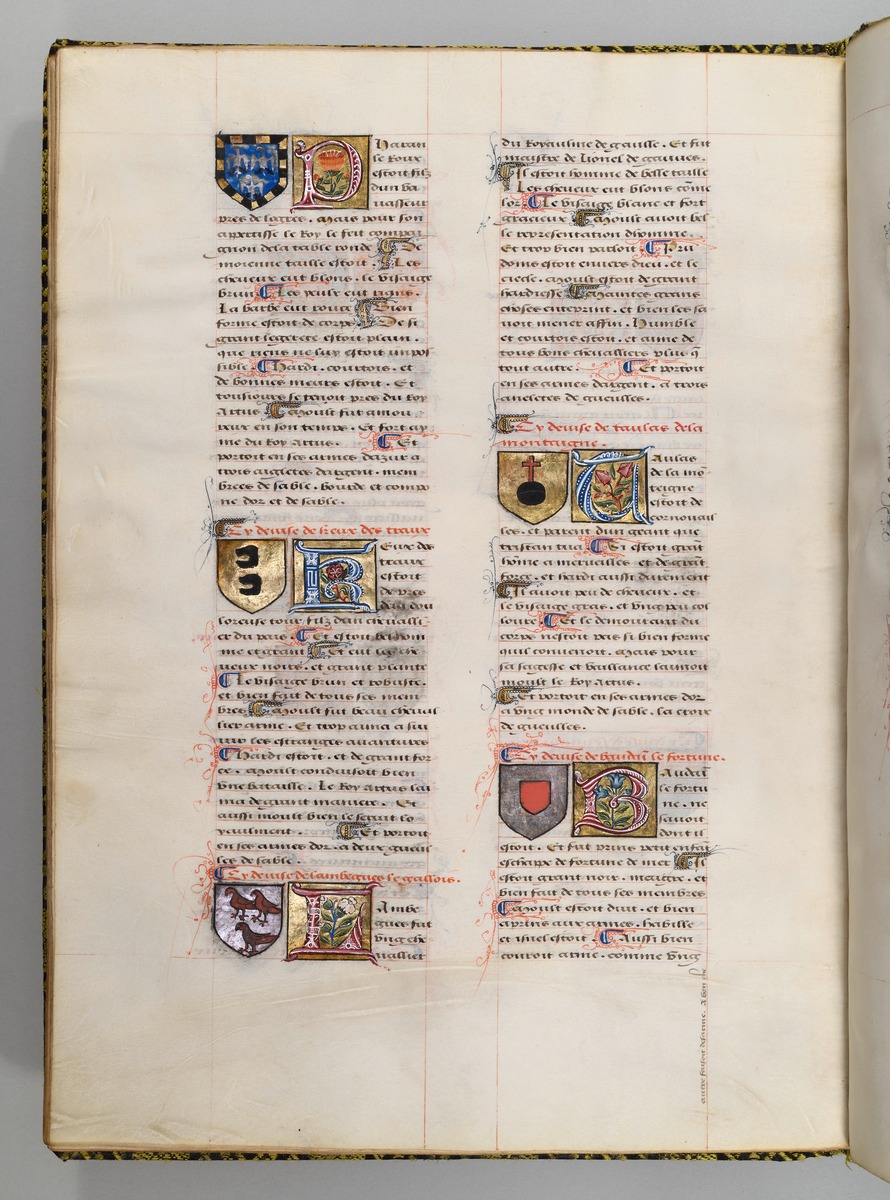 Haran
le Roux
estoit filz
dun ba
uasseur
pres de logres . Mais pour son
apertisse le Roy le feit compai
gnon de la table ronde De
moienne taille estoit . Les
cheueux eut blons . le visaige
brun Les yeulx eut
La barbe eut rouce Bien
forme estoit de corps De si
grant legerete estoit plain .
que riens ne luy estoit impos
sible . Hardi . courtois . et
de bonnes meurs estoit . Et
tousiours se tenoit pres du Roy
Artus Moult fut amou
reux en son temps . Et fort ay
me du Roy Artus . Et
portoit en ses armes dazur a
trois aigletes dargent . mem
brees de sable . bourde et compo
ne dor et de sable .
Cy deuise de des traux
des
traux
estoit
de pres
de la dou
loreuse tour filz dun cheualli
er du pais . Et estoit bel hom
me et grant Et eut les che
ueux noirs . et grant plante
Le visaige brun et robuste .
et bien fait de tous ses mem
bres Moult fut beau cheual
lier arme . Et trop aima a sui
uir les estranges auantures
Hardi estoit . et de grant for
ce . Moult conduisoit bien
vne bataille . Le Roy Artus lai
ma de grant maniere . Et
aussi moult bien le seruit lo
yaulment . Et portoit
en ses armes dor . a deux
les de sable .
Cy deuise de lambegues le gallois .
Lambe
gues fut
vng che
uallier
du Royaulme de gaulle . Et fut
maistre de Lionel de gauues .
Il estoit homme de belle taille
Les cheueux eut blons côme
lor . Le visaige blanc et fort
gracieux Moult auoit bel
le representation dhomme .
Et trop bien parloit . Pru
doms estoit enuers dieu . et le
ciecle . Moult estoit de grant
hardiesse Maintes grans
choses enteprint . et bien les sa
uoit mener affin . Humble
et courtois estoit . et aime de
tous bons cheualliers plus q̃
tout autre . Et portoit
en ses armes dargent . a trois
de gueulles .
Cy deuise de taulas de la
montaigne .
Taulas
de la mõ
teigne
estoit de
cornouail
les . et parent dun geant que
tristan tua Si estoit grãt
home a merueilles et de grãt
force . et hardi aussi durement
Il auoit peu de cheueux . et
le visaige gras . et vng peu col
loure . Et le demourant du
corps nestoit pas si bien forme
quil conuenoit . Mais pour
sa sagesse et vaillance lauoit
moult le Roy Artus .
Et portoit en ses armes dor
a vng monde de sable . la croix
de gueulles .
Cy deuise de baudũ le fortune .
Baudũ
le fortu
ne . ne
sauoit
dont il
estoit . Et fut prins petit enfãt
eschappe de fortune de mer Il
estoit grant noir . maigre . et
bien fait de tous ses membres
Moult estoit duit . et bien
aprins aux armes . habille
et isnel estoit . Aussi bien
couroit arme . comme vng
autre faisoit desarme . A bon che